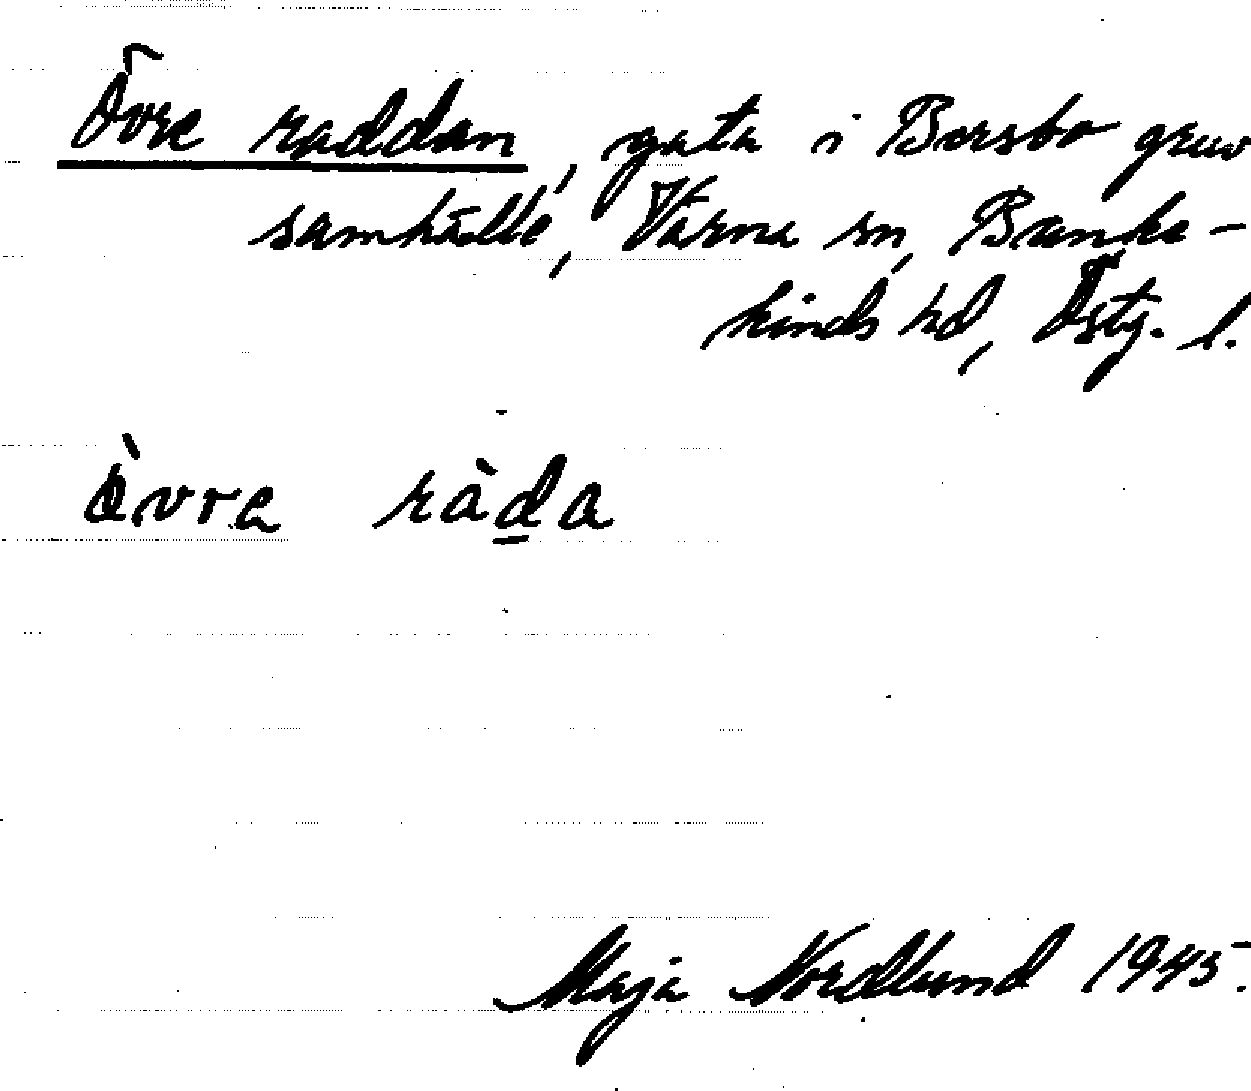 Övre raddan, gata i Bersbo gruv
samhälle, Värna sn, Banke-
kinds hd, Östg. l.
òvre ràda
Maja Nordlund 1945.